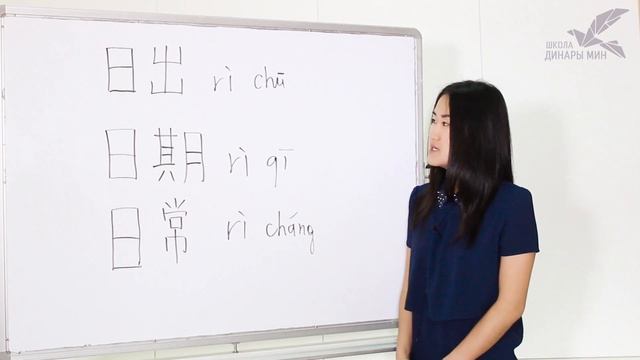 日出 rì chū
日期 rì qī
日常 rì cháng
ШКОЛА
ДИНАРЫ МИН